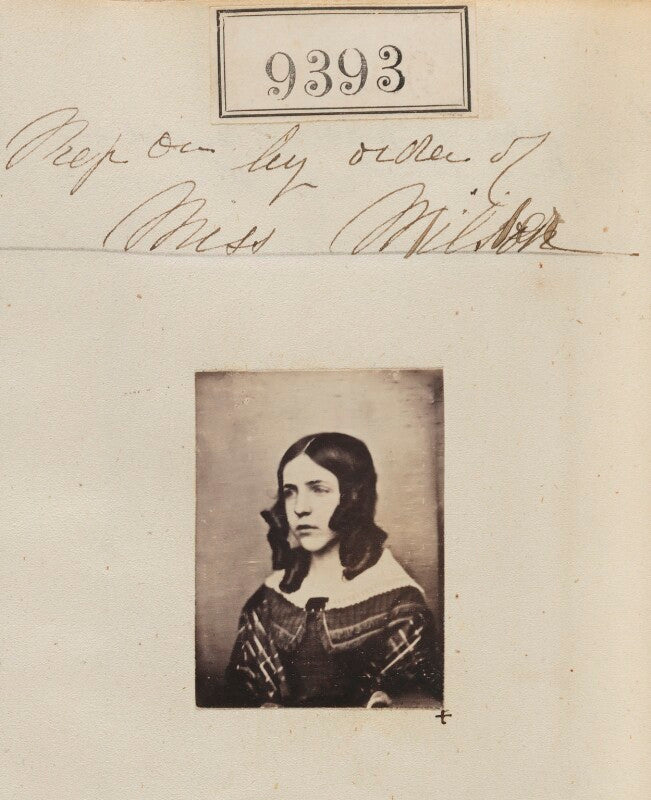 9393
Rep on by order of
Miss Wilson
+